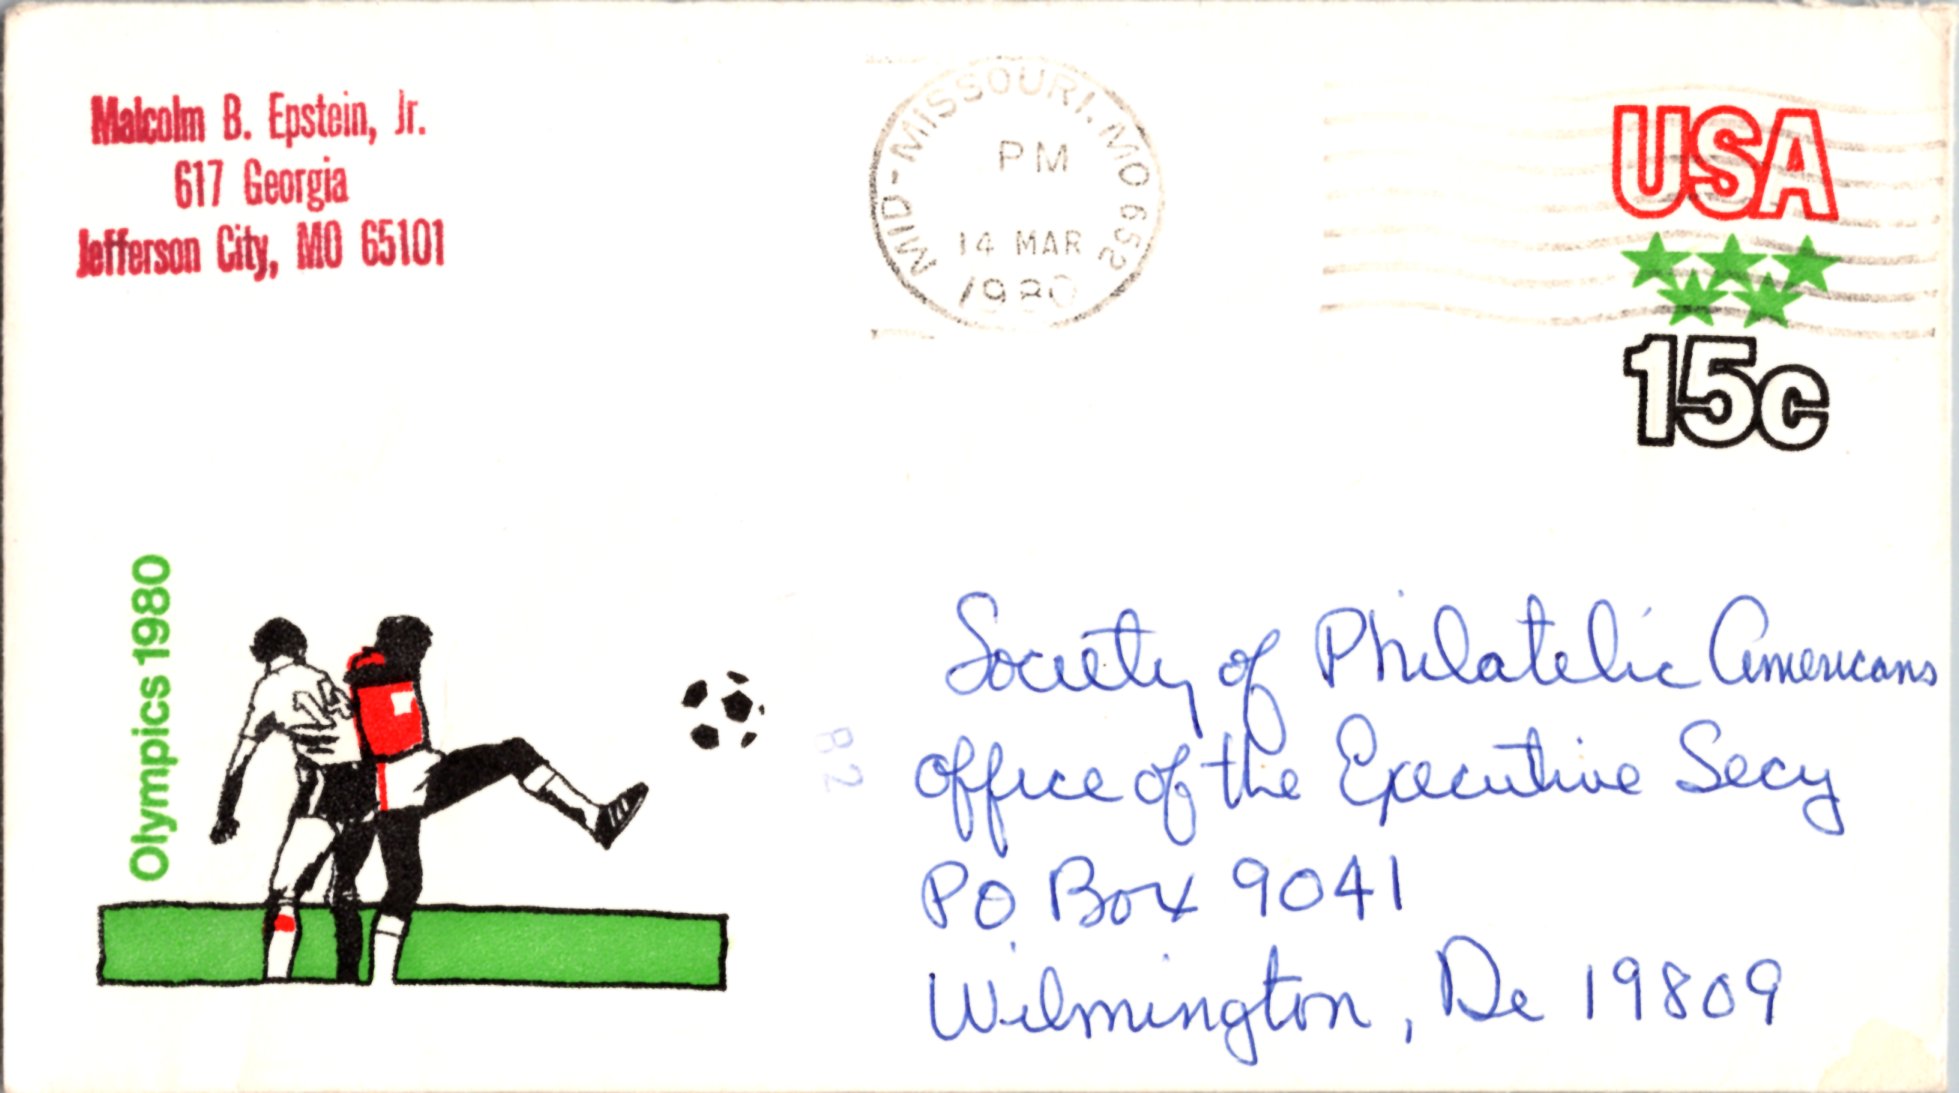 Malcolm B. Epstein, Jr.
617 Georgia
Jefferson City, MO 65101
MID-MISSOURI, MO 652
PM
14 MAR
1980
USA
15c
Olympics 1980
14
B2
Society of Philatelic Americans
Office of the Executive Secy
PO Box 9041
Wilmington, De 19809